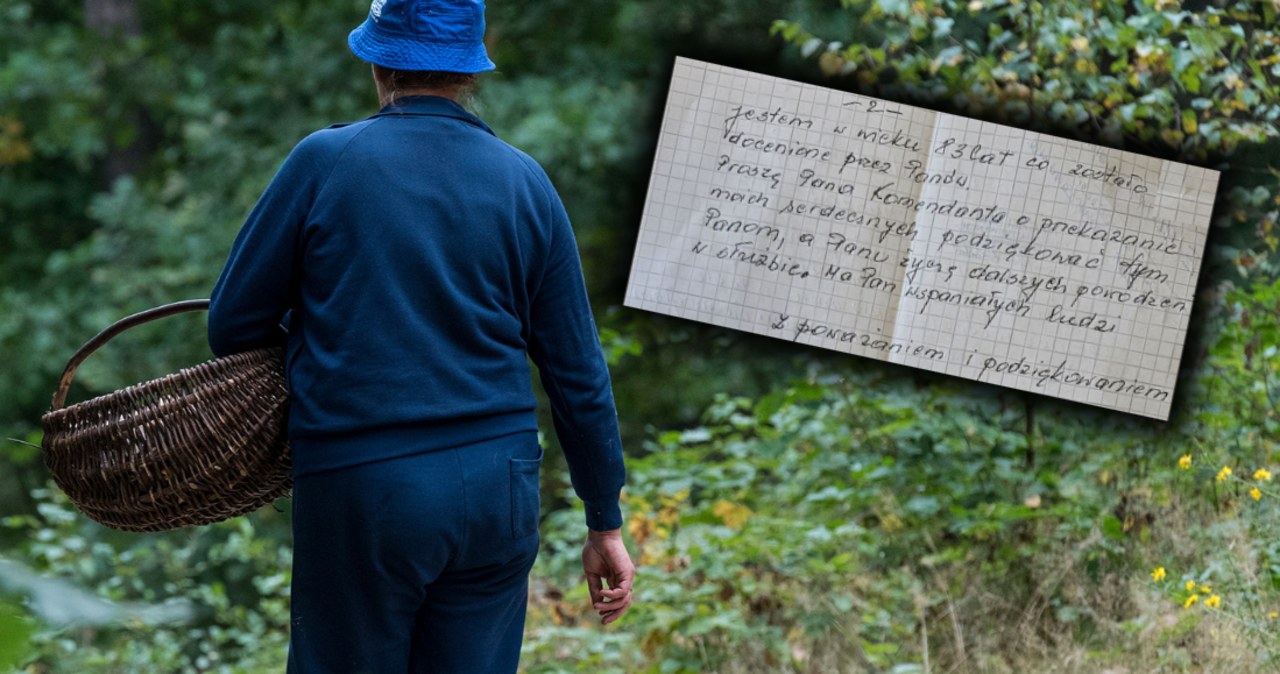 -2-
Jestem w wieku 83 lat co zostało
docenione przez Panów.
Proszę Pana Komendanta o przekazanie
moich serdecznych podziękować tym
Panom, a Panu życzę dalszych powodzeń
w służbie. Ma Pan wspaniałych ludzi
Z poważaniem i podziękowaniem